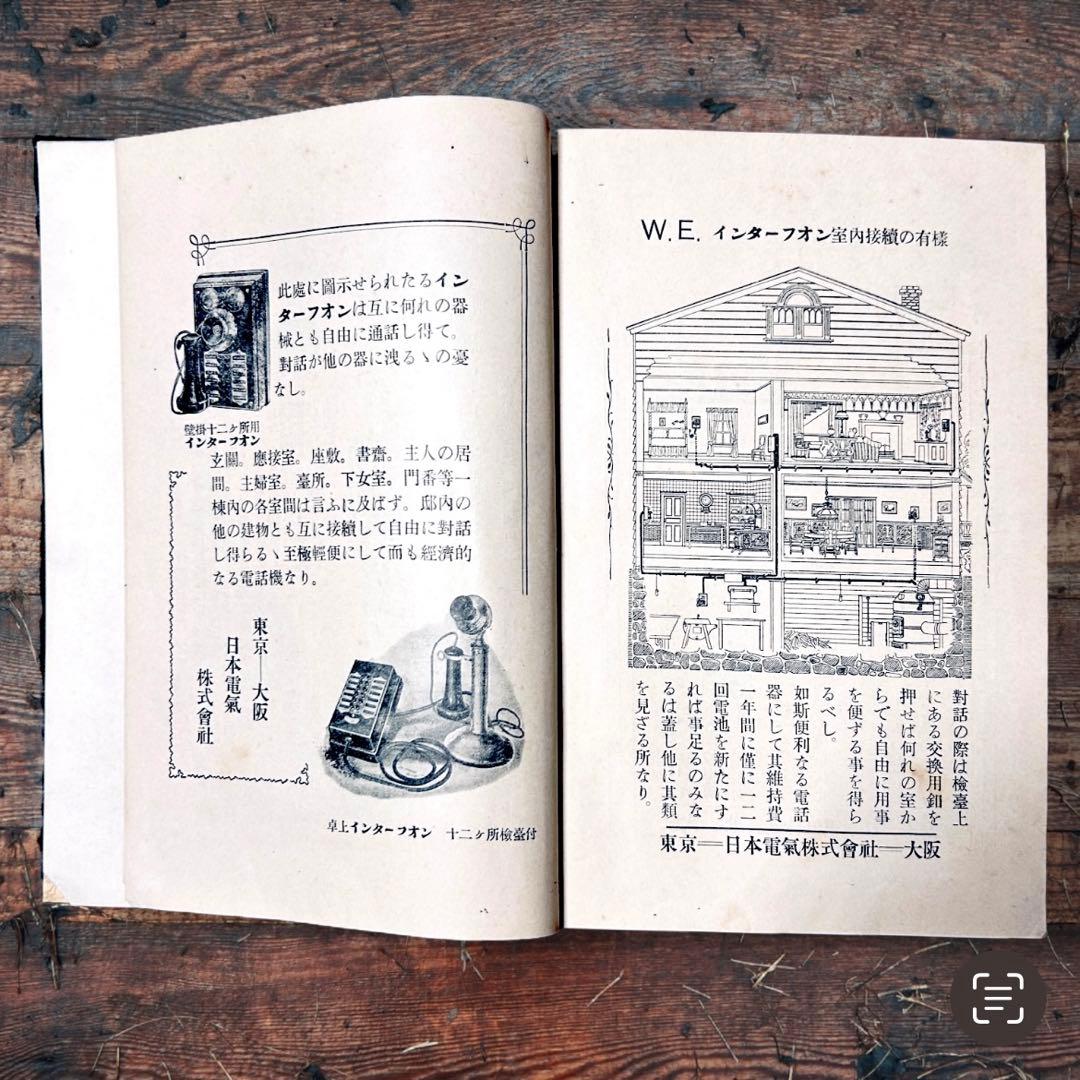 此處に圖示せられたるイン
ターフオンは互に何れの器
械とも自由に通話し得て。
對話が他の器に洩るゝの憂
なし。
壁掛十二ヶ所用
インターフオン
玄關。應接室。座敷。書齋。主人の居
間。主婦室。臺所。下女室。門番等一
棟內の各室間は言ふに及ばず。邸內の
他の建物とも互に接續して自由に對話
し得らるゝ至極輕便にして而も經濟的
なる電話機なり。
東京—大阪
日本電氣
株式會社
卓上インターフオン 十二ヶ所檢臺付
W.E. インターフオン室內接續の有樣
對話の際は檢臺上
にある交換用釦を
押せば何れの室か
らでも自由に用事
を便ずる事を得ら
るべし。
如斯便利なる電話
器にして其維持費
一年間に僅に一二
回電池を新たにす
れば事足るのみな
るは蓋し他に其類
を見ざる所なり。
東京＝日本電氣株式會社＝大阪